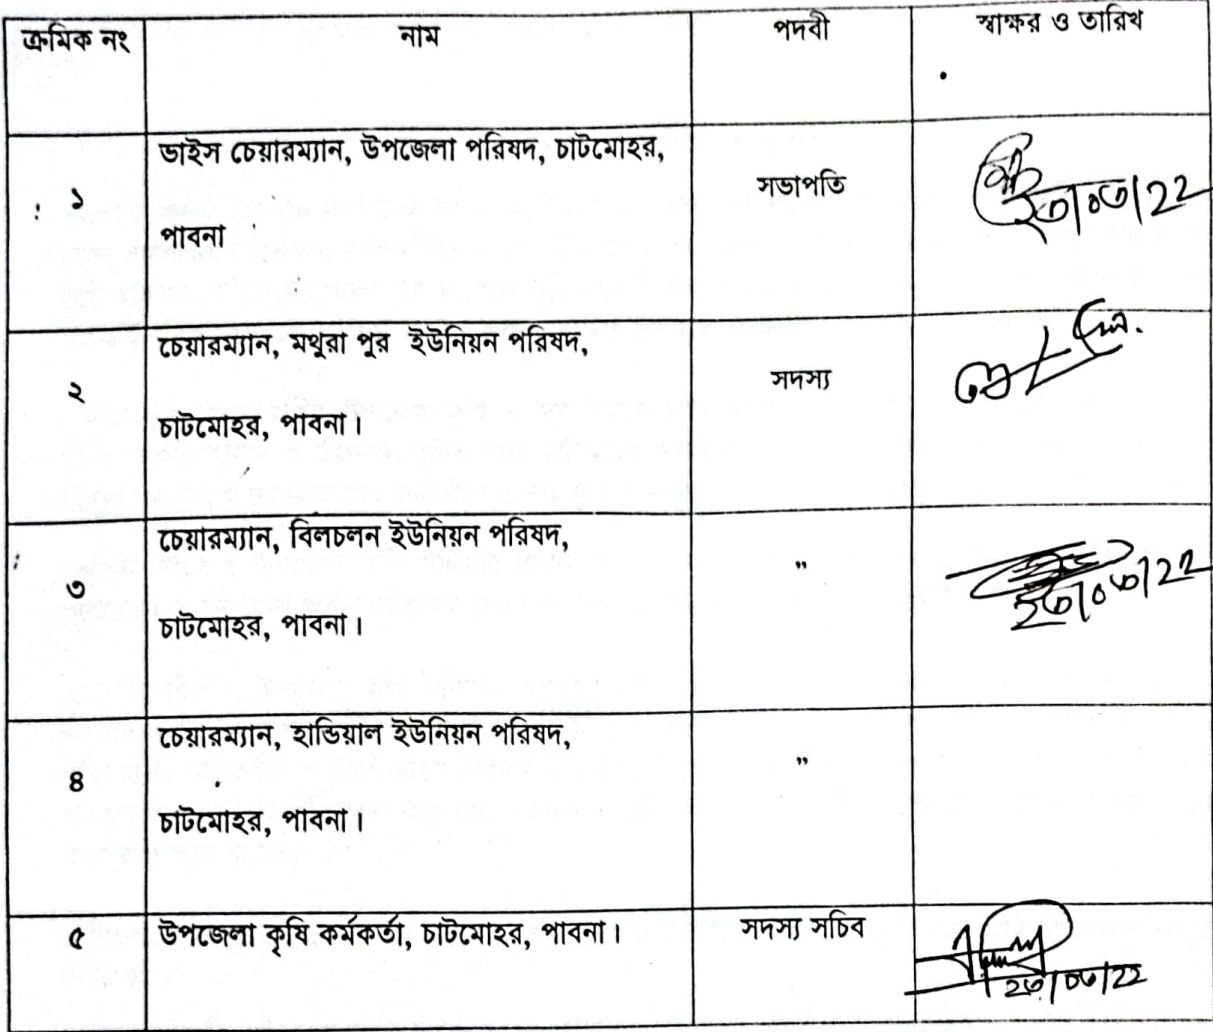 ক্রমিক নং নাম পদবী স্বাক্ষর ও তারিখ
ভাইস চেয়ারম্যান, উপজেলা পরিষদ, চাটমোহর,
১ সভাপতি
পাবনা
২৩/০৩/22
চেয়ারম্যান, মথুরা পুর ইউনিয়ন পরিষদ,
২ সদস্য
চাটমোহর, পাবনা।
চেয়ারম্যান, বিলচলন ইউনিয়ন পরিষদ,
৩ ”
চাটমোহর, পাবনা।
২৩/০৩/22
চেয়ারম্যান, হান্ডিয়াল ইউনিয়ন পরিষদ,
৪ ”
চাটমোহর, পাবনা।
৫ উপজেলা কৃষি কর্মকর্তা, চাটমোহর, পাবনা। সদস্য সচিব
২৩/০৩/22